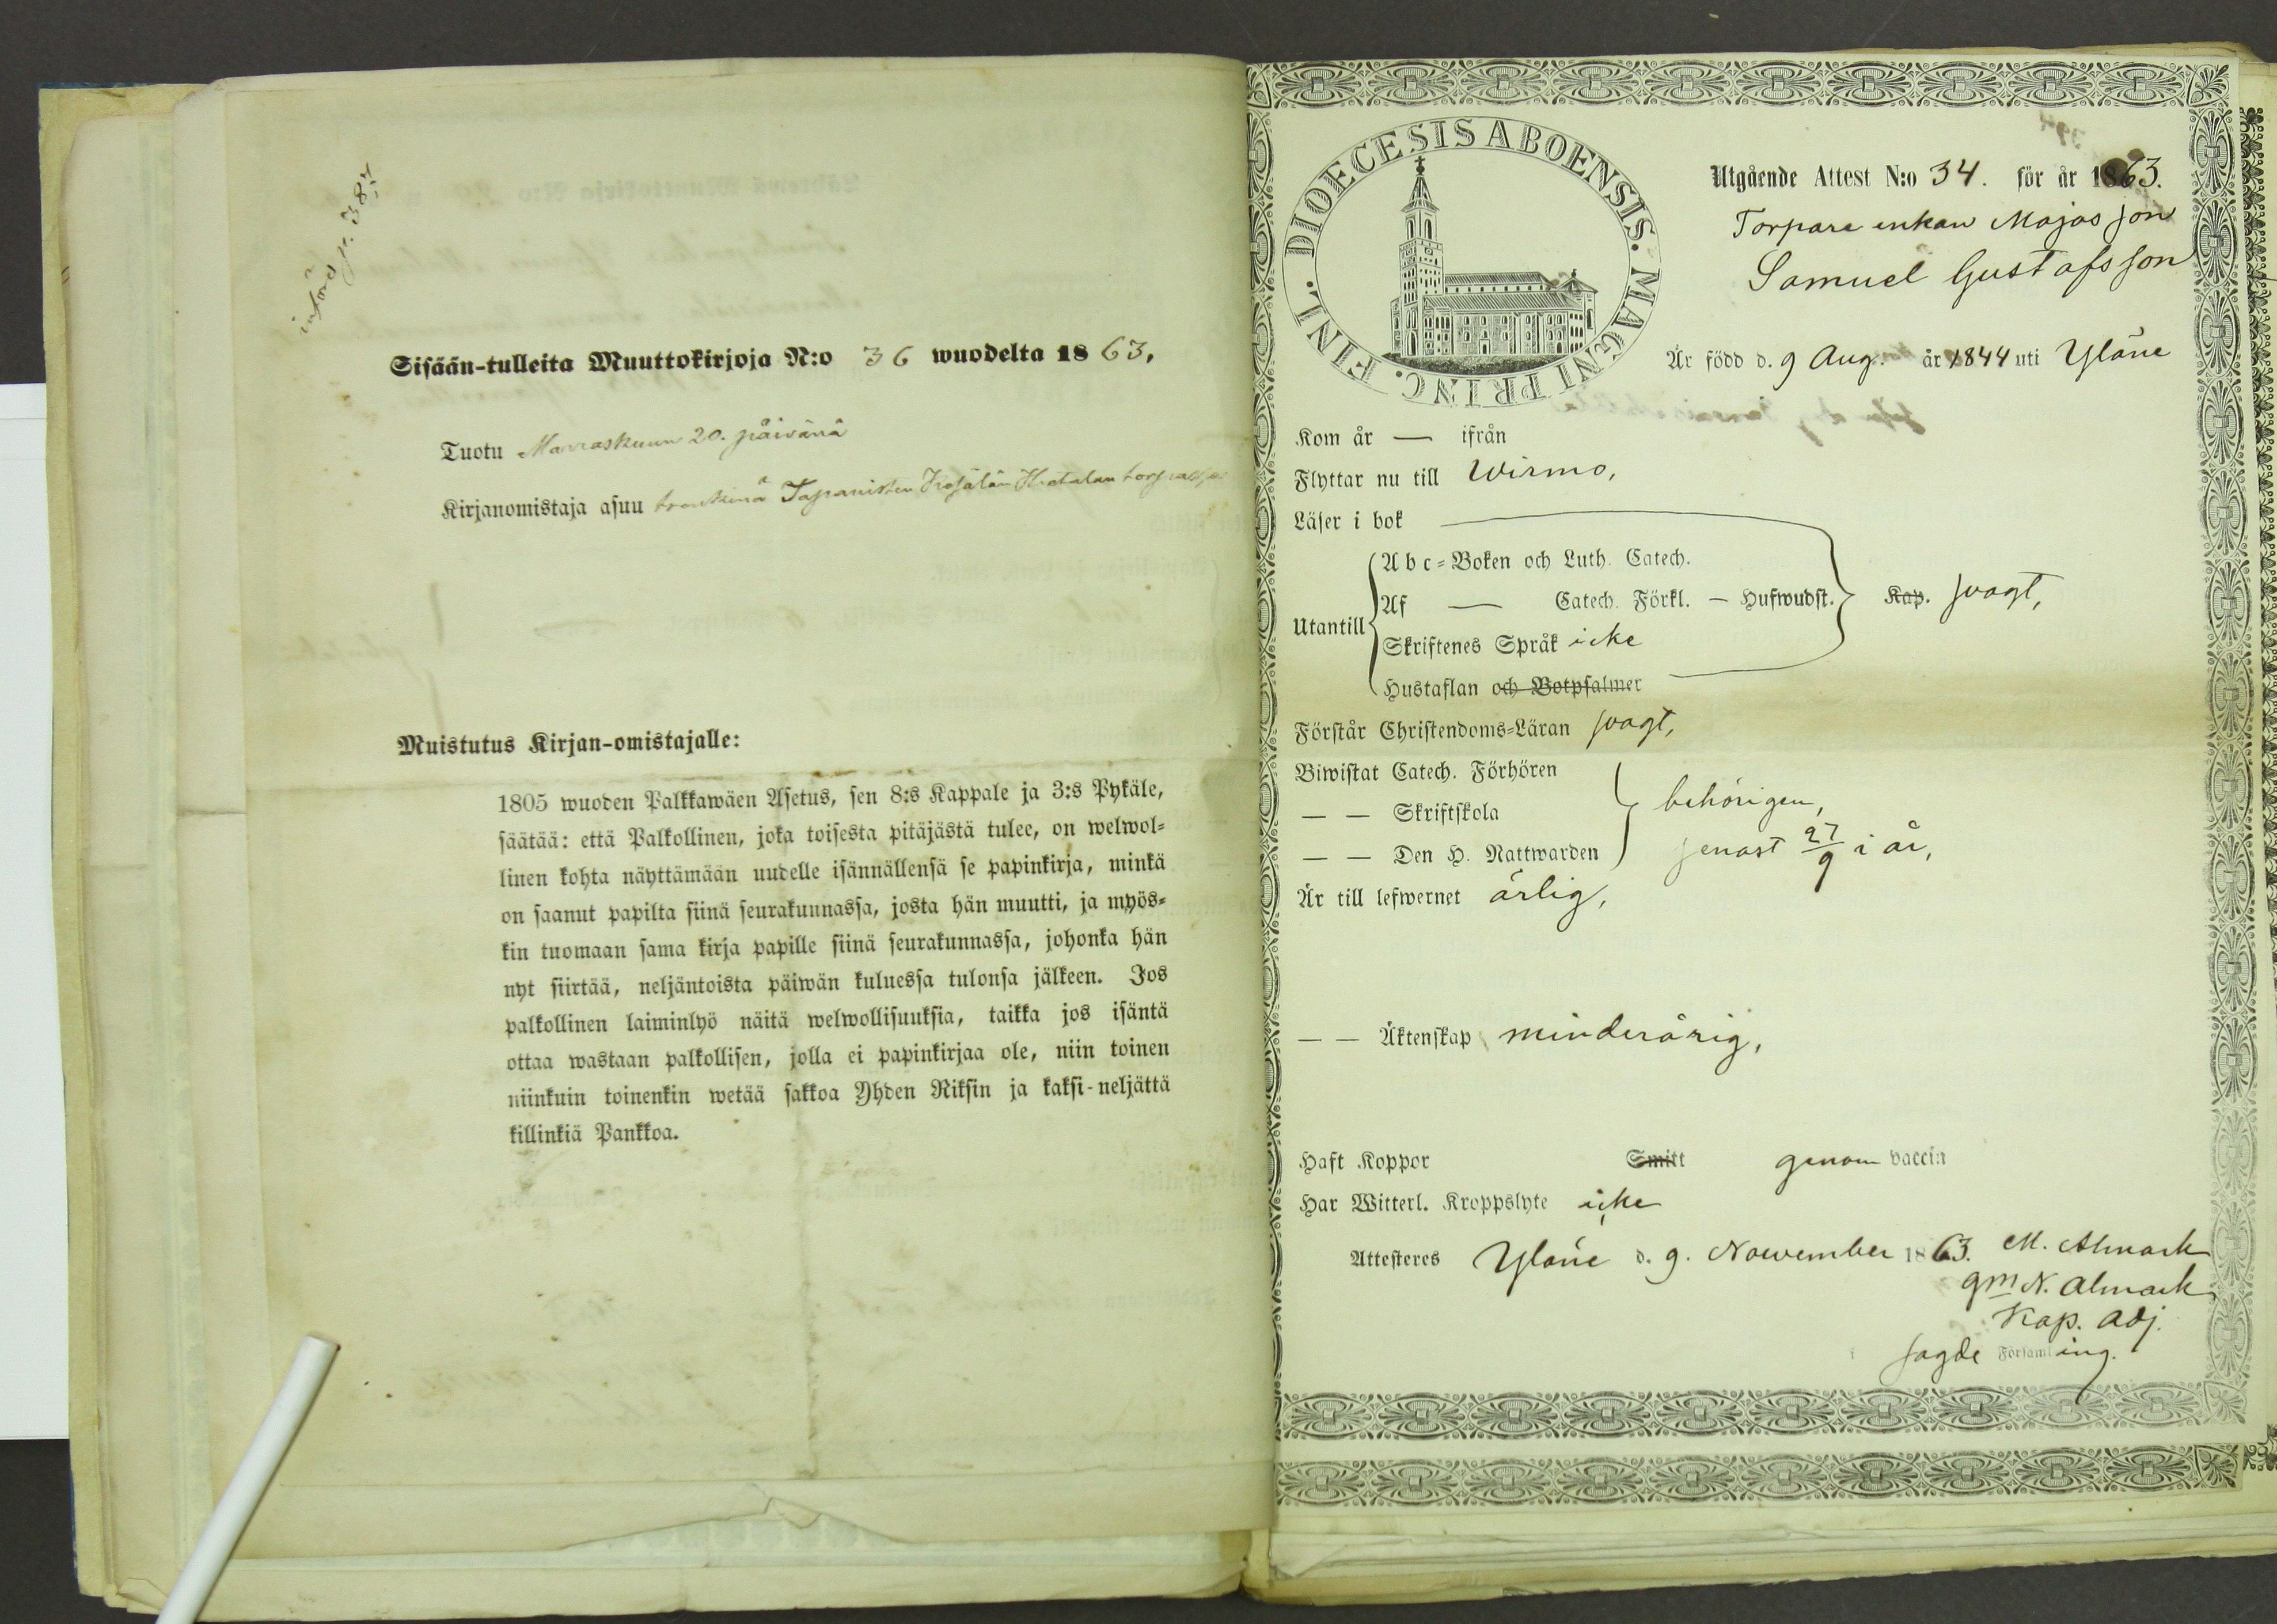 införd p. 384
Sisään-tulleita Muuttokirjoja N:o 36 wuodelta 1863,
Tuotu Marraskuun 20. päivänä
Kirjanomistaja asuu Tapanisten torpassa
Muistutus Kirjan-omistajalle:
1805 wuoden Palkkawäen Asetus, sen 8:s Kappale ja 3:s Pykäle,
säätää: että Palkollinen, joka toisesta pitäjästä tulee, on welwol-
linen kohta näyttämään uudelle isännällensä se papinkirja, minkä
on saanut papilta siinä seurakunnassa, josta hän muutti, ja myös-
kin tuomaan sama kirja papille siinä seurakunnassa, johonka hän
nyt siirtää, neljäntoista päiwän kuluessa tulonsa jälkeen. Jos
palkollinen laiminlyö näitä welwollisuuksia, taikka jos isäntä
ottaa wastaan palkollisen, jolla ei papinkirjaa ole, niin toinen
niinkuin toinenkin wetää sakkoa Yhden Riksin ja kaksi-neljättä
killinkiä Pankkoa.
DIOECESIS ABOENSIS. MAGNI PRINC. FINL.
Utgående Attest N:o 34. för år 1863.
Torpare enkan Majas son
Samuel Gustafsson
Är född d. 9 Aug. år 1844 uti Yläne
Kom år — ifrån
Flyttar nu till Wirmo,
Läser i bok
Utantill
Abc-Boken och Luth. Catech.
Af — Catech. Förkl. — Hufwudst. Kap. svagt,
Skriftenes Språk icke
Hustaflan och Botpsalmer
Förstår Christendoms-Läran svagt,
Biwistat Catech. Förhören
— — Skriftskola behörigen,
— — Den H. Nattwarden senast 27/9 i år,
Är till lefwernet ärlig,
— — Äktenskap minderårig,
Haft Koppor Smitt genom vaccin
Har Witterl. Kroppslyte icke
Attesteres Yläne d. 9. November 1863. M. Almark
gm N. Almark
Kap. Adj.
i sagde Församling.